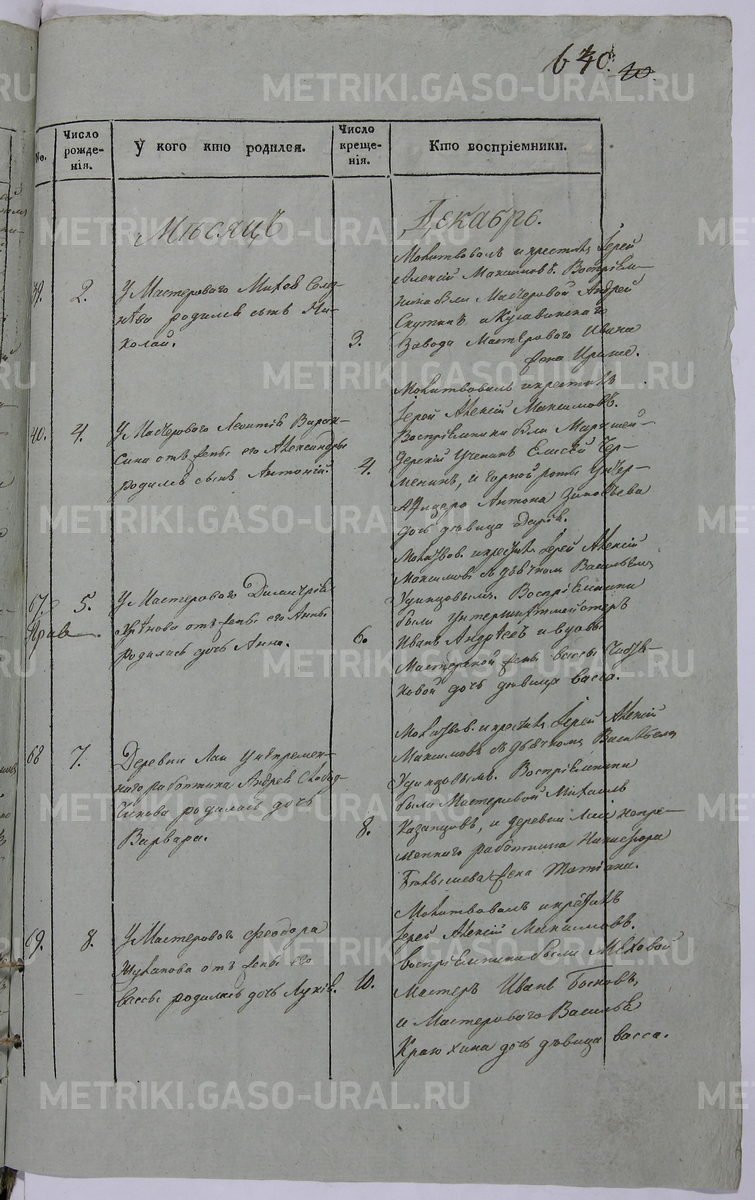 640. 20.
No.
Число рожде-нія.
У кого кто родился.
Число креще-нія.
Кто воспріемники.
Мѣсяцъ
Декабрь.
39.
2.
У Мастероваго
родился сынъ Ни-
колай.
3.
Молитвовалъ и крестилъ Іерей
Алексій Максимовъ. Воспріем-
ники были Мастеровой Андрей
Скутинъ и Кушвинскаго
Завода Мастероваго Ивана
жена
40.
4.
У Мастероваго Леонтія
отъ жены его Александры
родился сынъ Антоній.
4.
Молитвовалъ и крестилъ
Іерей Алексій Максимовъ.
Воспріемники были Маркшей-
дерскій Ученикъ Елисей Чер-
менинъ, и горной роты Унтер-
Афицера Антона Зиновьева
дочь дѣвица Дарія.
67.
5.
У Мастероваго Димитрія
отъ жены его Анны
родилась дочь Анна.
6.
Молитвов. и крестилъ Іерей Алексій
Максимовъ съ дьячкомъ Васильемъ
Удинцовымъ. Воспріемники
были Унтершихтмейстеръ
Иванъ Андрѣевъ и вдовы
Мастерской жены Вассы
дочь дѣвица Васса.
68
7.
Деревни Лаи Унепремен-
наго работника Андрея
родилась дочь
Варвара.
8.
Молитвов. и крестилъ Іерей Алексій
Максимовъ съ дьячкомъ Васильемъ
Удинцовымъ. Воспріемники
были Мастеровой Михаилъ
Казанцовъ, и деревни Лаи непре-
меннаго работника Никифора
жена Татіана.
69.
8.
У Мастероваго Феодора
отъ жены его
Вассы родилась дочь Лукія.
10.
Молитвовалъ и крестилъ
Іерей Алексій Максимовъ.
Воспріемники были Меховой
Мастеръ Иванъ
и Мастероваго Василья
Краюхина дочь дѣвица Васса.
METRIKI.GASO-URAL.RU